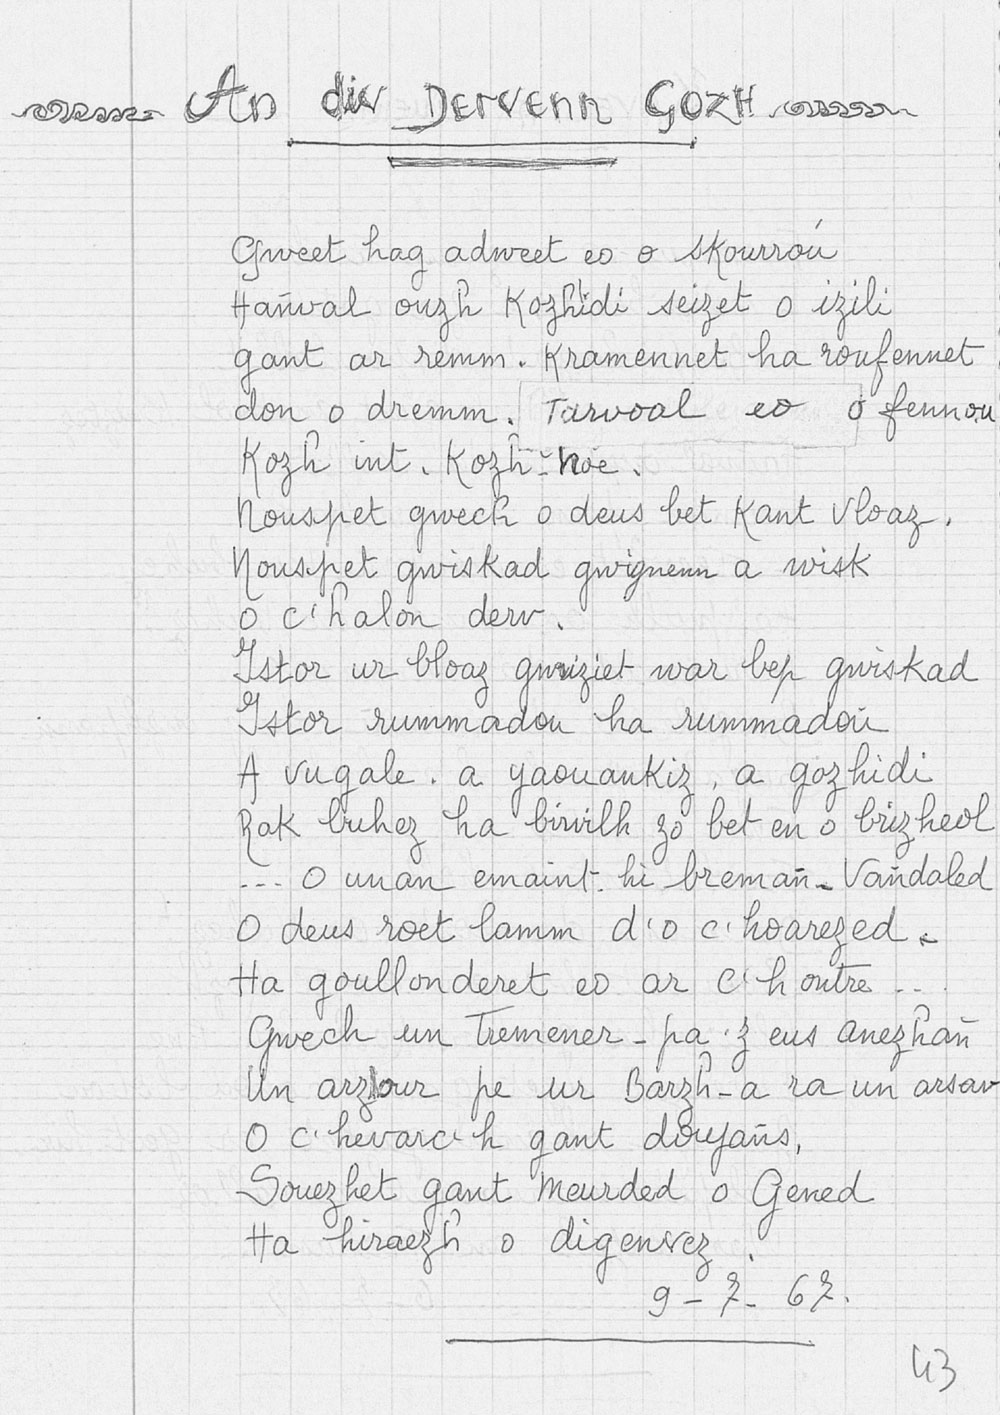 An div Dervenn Gozh
Gweet hag adweet eo o skourroú
Hañval ouzh Kozhidi seizet o izili
gant ar remm. Kramennet ha roufennet
don o dremm. Tarvoal eo o fennou
Kozh int. Kozh-Noe.
Nouspet gwech o deus bet Kant vloaz.
Nouspet gwiskad gwignenn a wisk
o c'halon derv.
Istor ur bloaz gwriziet war bep gwiskad
Istor rummadou ha rummadoù
A vugale. a yaouankiz, a gozhidi
Rak buhez ha birvilh zo bet en o brizheol
... O unan emaint-hi bremañ - Vañdaled
O deus roet lamm d'o c'hoarezed.
Ha goullonderet eo ar c'hontre ...
Gwech un Tremener - pa 'z eus anezhañ
Un arzour pe ur Barzh - a ra un arsav
O c'hevarc'h gant doujañs,
Souezhet gant meurded o Gened
Ha hiraezh o digenvez.
9 - 7 - 67.
43